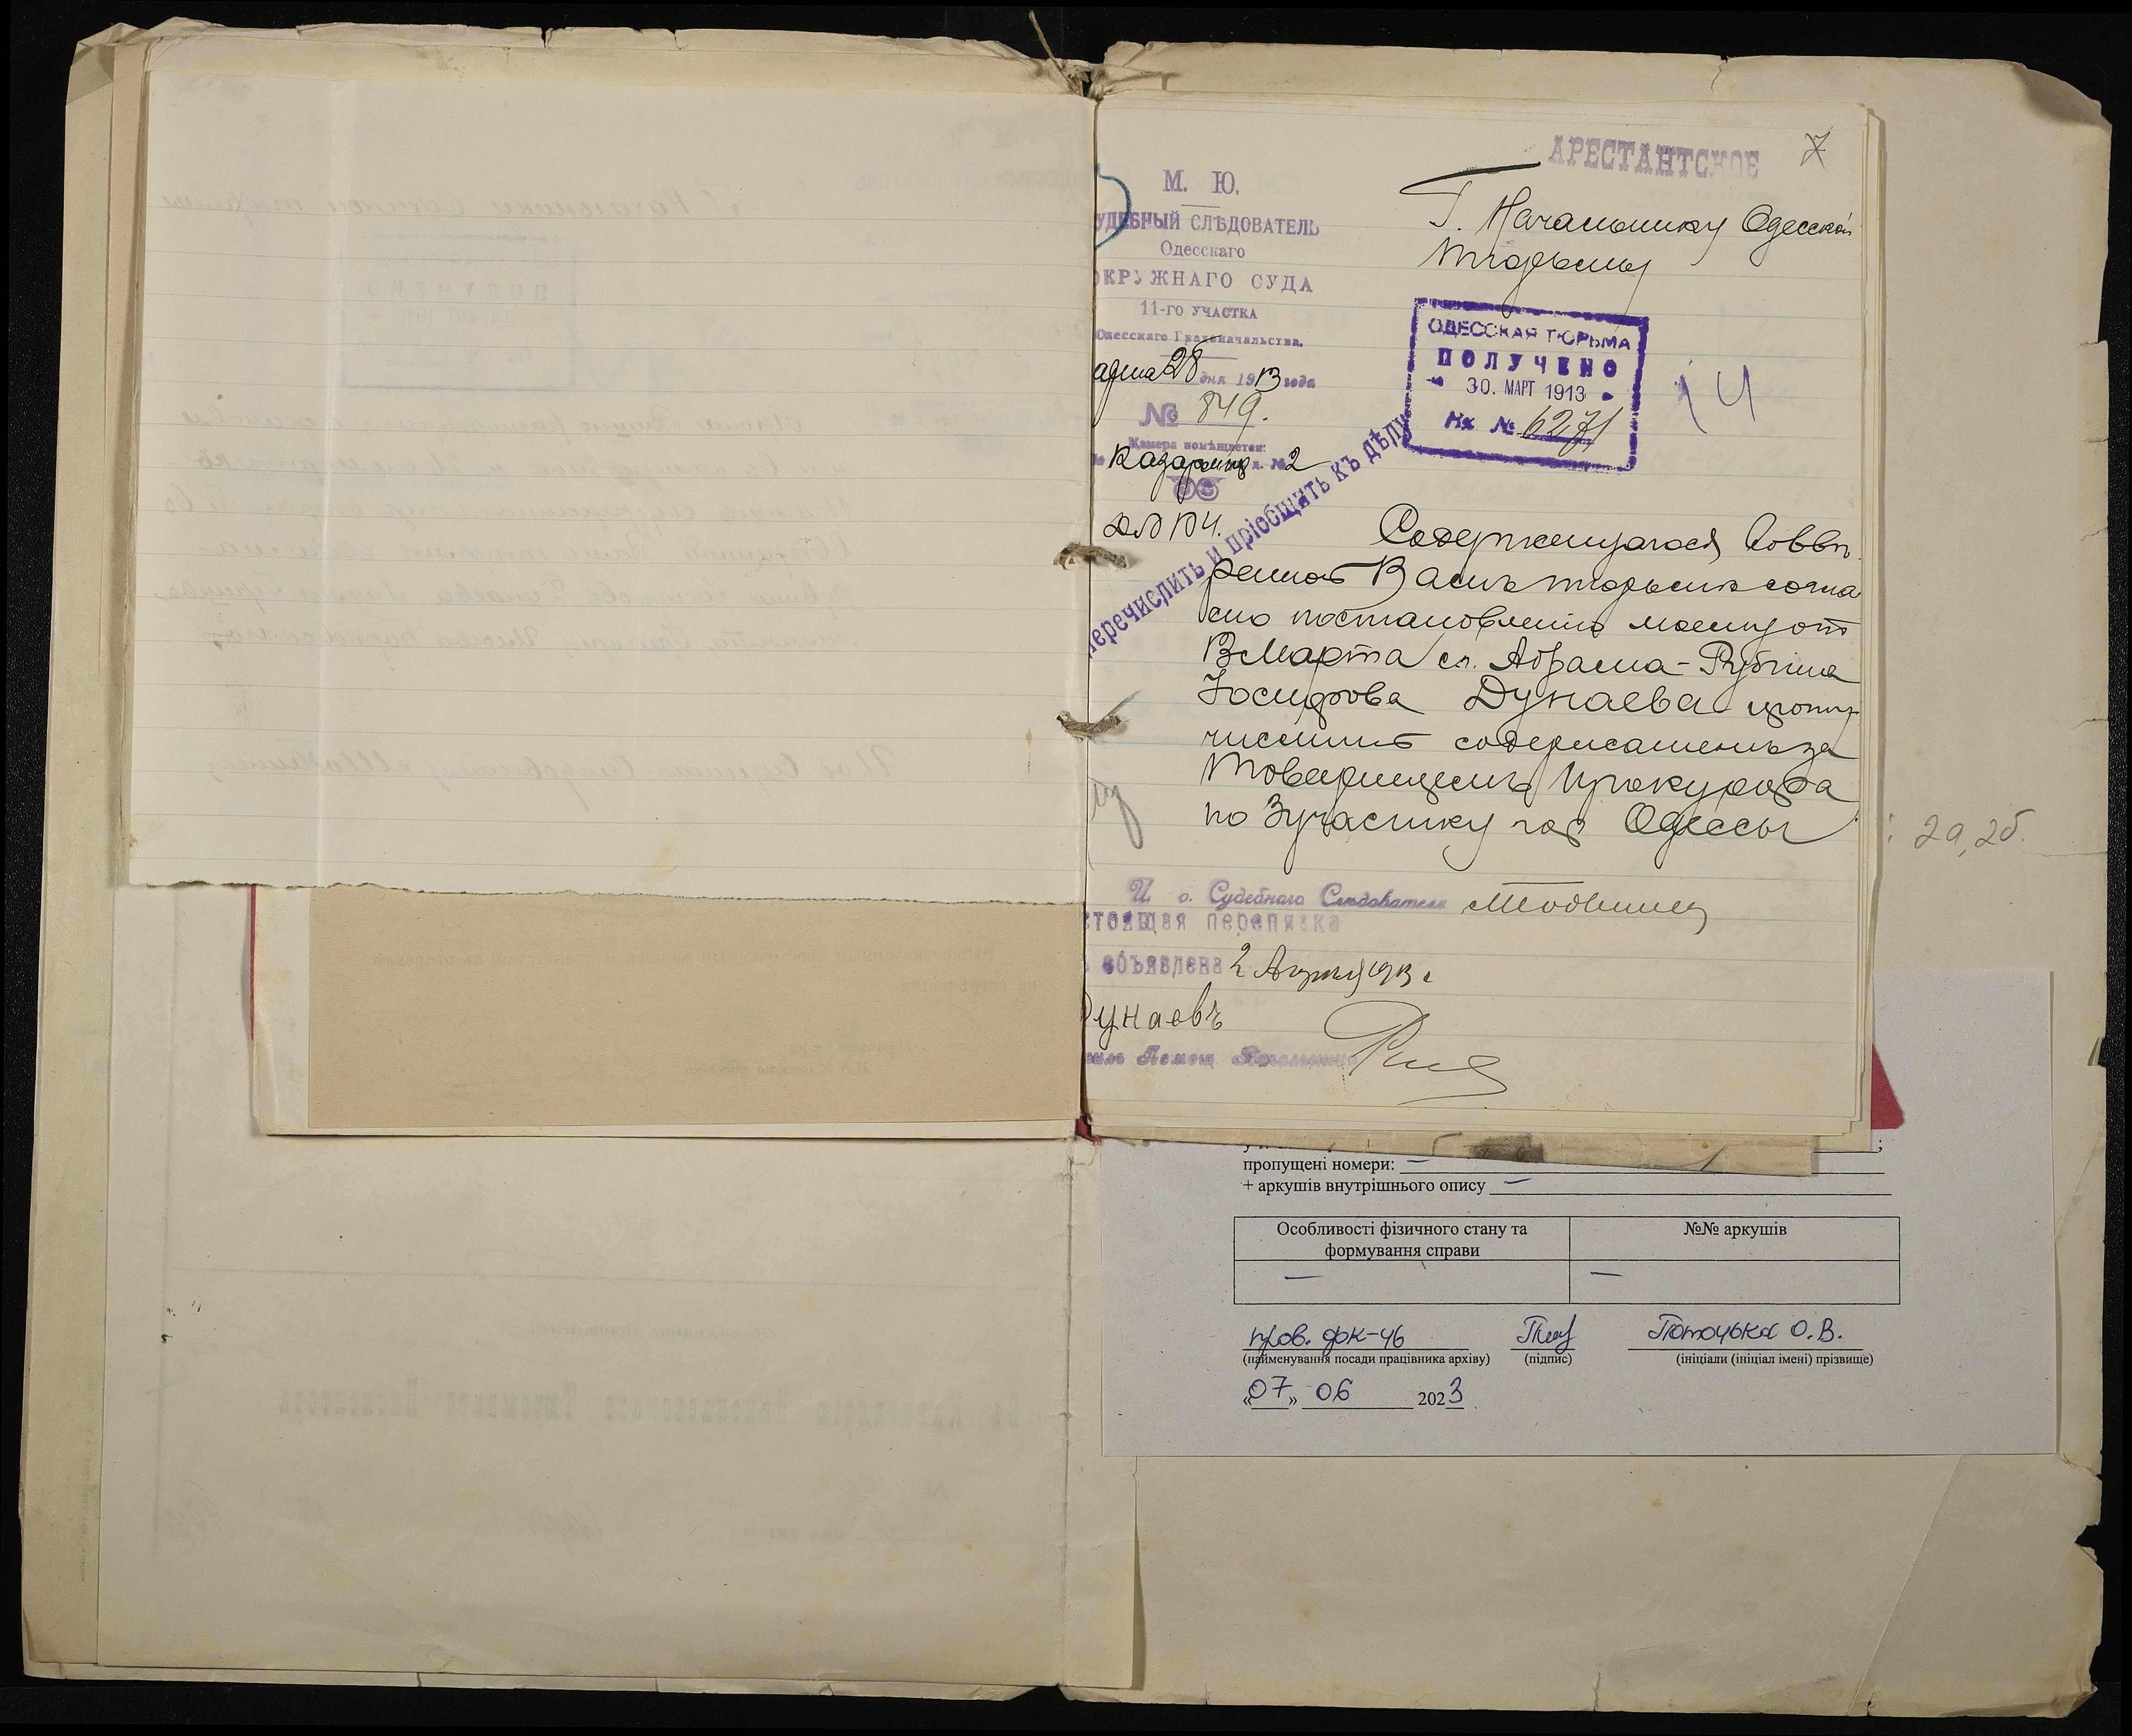 АРЕСТАНТСКОЕ
7
М. Ю.
УДЕБНЫЙ СЛѢДОВАТЕЛЬ
Одесскаго
ОКРУЖНАГО СУДА
11-го УЧАСТКА
Одесскаго Градоначальства.
28 дня 1913 года
№ 849.
Камера помѣщается:
д. № 2
Г. Начальнику Одесской
тюрьмы
ОДЕССКАЯ ТЮРЬМА
ПОЛУЧЕНО
30. МАРТ 1913
Вх № 6271
14
перечислить и пріобщить къ дѣлу
Содержащагося во ввѣ
ренной Вамъ тюрьмѣ согла
сно постановленію моему от
13 Марта с.г. Абрама-Рувина
Іосифова Дунаева прошу
числить содержаніемъ за
Товарищемъ Прокурора
по 3 участку гор Одессы
И. о. Судебнаго Слѣдователя
стоящая переписка
объявлена 2 Апреля 1913 г
Дунаевъ
Помощ. Начальника
2а, 2б.
пропущені номери: —
+ аркушів внутрішнього опису —
Особливості фізичного стану та
формування справи
№№ аркушів
—
—
пров. фк-4б
Поточька О.В.
(найменування посади працівника архіву) (підпис) (ініціали (ініціал імені) прізвище)
«07» 06 2023